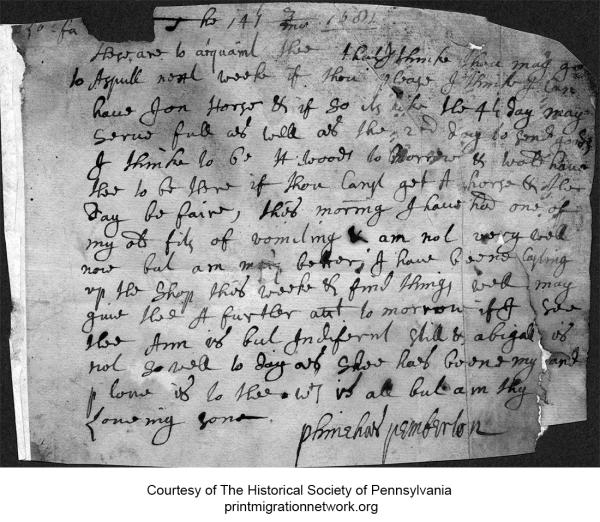 the 14th 7 mo 1681
these are to acquaint thee that I thinke thou may goe
to Aspull next weeke if thou please I thinke I can
have Jon Horse & if so its like the 4th day may
serve full as well as the 2nd day to send
I thinke to be at woods to Morrow & would have
thee to be there if thou canst get A horse & the
day be faire, this morning I have had one of
my old fits of vomiting & am not very well
now but am much better, I have beene casting
up the Shop this weeke & find things well may
give thee A further acct to morrow if I see
thee Ann is but Indifernt still & abigall is
not so well to day as shee has beene my and
p love is to thee wch is all but am thy
loveing sone
phinehas pemberton
Courtesy of The Historical Society of Pennsylvania
printmigrationnetwork.org